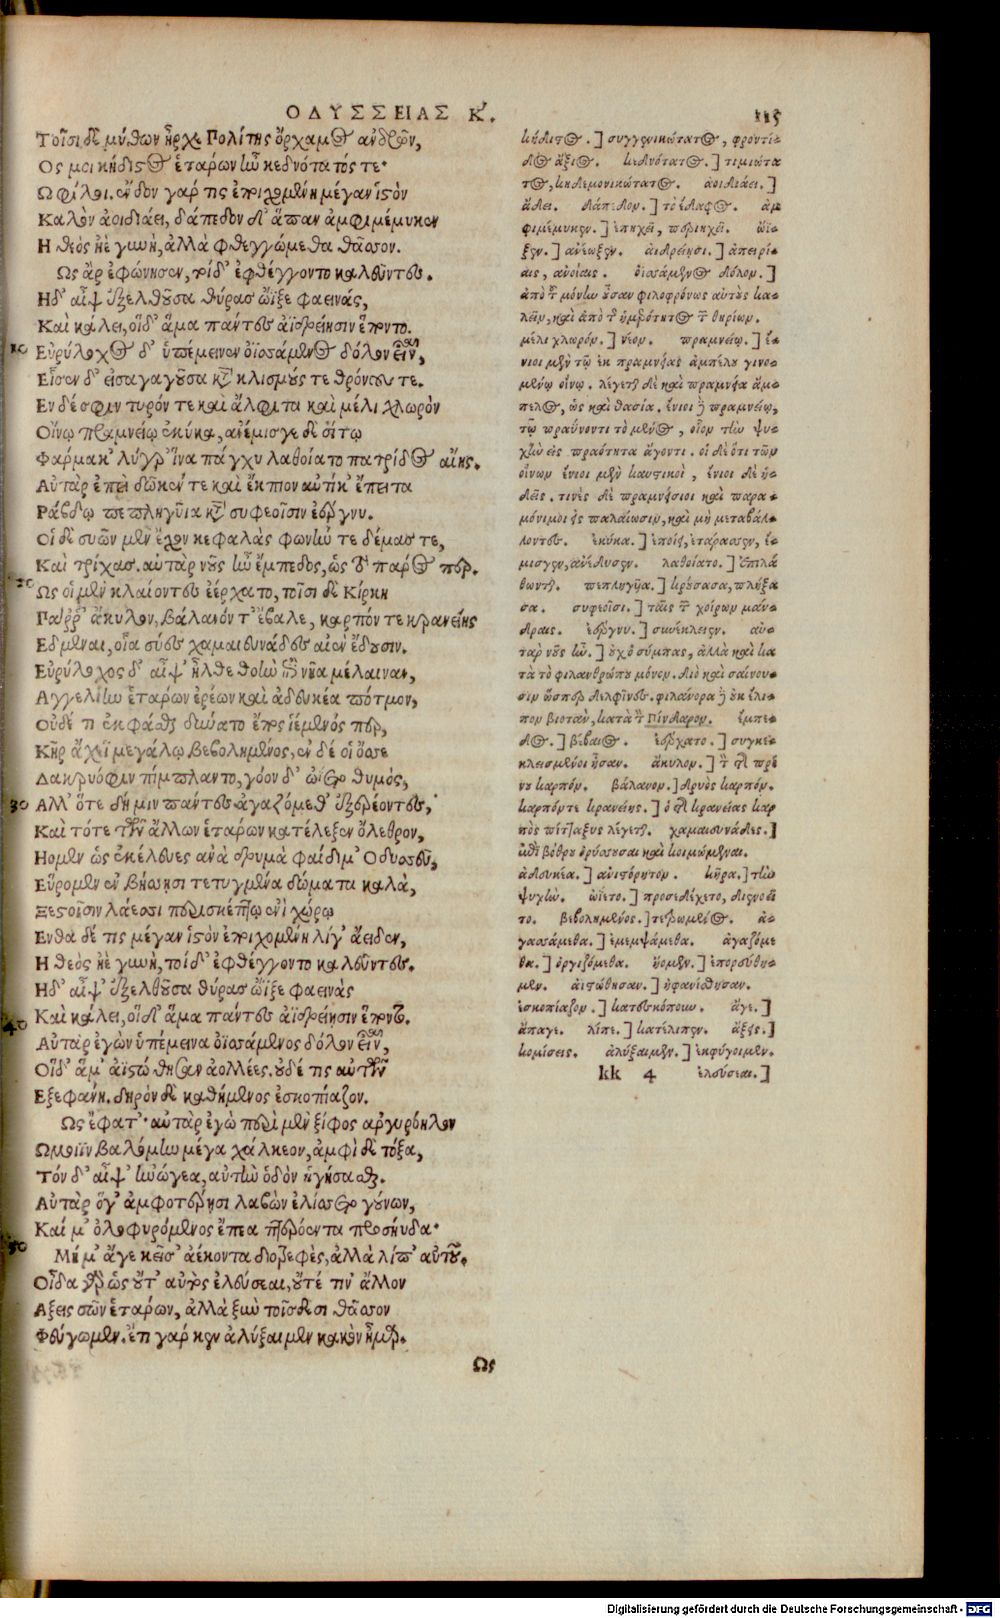 ΟΔΥΣΣΕΙΑΣ Κ.
115
Τοῖσι δὲ μύθων ἦρχε Πολίτης ὄρχαμος ἀνδρῶν,
Ος μοι κήδιστος ἑτάρων ἦν κεδνότατός τε·
Ω φίλοι. ἔνδον γάρ τις ἐποιχομένη μέγαν ἱστὸν
Καλὸν ἀοιδιάει, δάπεδον δ' ἅπαν ἀμφιμέμυκεν
Η θεὸς ἠὲ γυνὴ, ἀλλὰ φθεγγώμεθα θᾶσσον.
Ως ἄρ ἐφώνησεν, τοὶ δ' ἐφθέγγοντο καλεῦντες.
Ηδ' αἶψ' ἐξελθοῦσα θύρας ὤϊξε φαεινάς,
Καὶ κάλει, οἵδ' ἅμα πάντες ἀϊδρείησιν ἕποντο.
10 Εὐρύλοχος δ' ὑπέμεινεν ὀϊσσάμενος δόλον εἶναι,
Εἷσεν δ' εἰσαγαγοῦσα κατὰ κλισμούς τε θρόνους τε.
Εν δέ σφιν τυρόν τε καὶ ἄλφιτα καὶ μέλι χλωρὸν
Οἴνῳ πραμνείῳ ἐκύκα, ἀνέμισγε δὲ σίτῳ
Φάρμακ' λύγρ' ἵνα πάγχυ λαθοίατο πατρίδος αἴης.
Αὐτὰρ ἐπεὶ δῶκέν τε καὶ ἔκπιον αὐτίκ' ἔπειτα
Ράβδῳ πεπληγῦια κατὰ συφεοῖσιν ἐέργνυ.
Οἱ δὲ συῶν μὲν ἔχον κεφαλὰς φωνήν τε δέμας τε,
Καὶ τρίχας. αὐτὰρ νοῦς ἦν ἔμπεδος, ὡς τὸ πάρος περ.
20 Ως οἱ μὲν κλαίοντες ἐέρχατο, τοῖσι δὲ Κίρκη
Παρ' ἄκυλον, βάλανόν τ' ἔβαλε, καρπόν τε κρανείης
Εδμεναι, οἷα σύες χαμαιευνάδες αἰὲν ἔδουσιν.
Εὐρύλοχος δ' αἶψ' ἦλθε θοὴν ἐπὶ νῆα μέλαιναν,
Αγγελίην ἑτάρων ἐρέων καὶ ἀδευκέα πότμον,
Οὐδέ τι ἐκφάσθαι δύνατο ἔπος ἱέμενός περ,
Κῆρ ἄχεϊ μεγάλῳ βεβολημένος, ἐν δέ οἱ ὄσσε
Δακρυόφιν πίμπλαντο, γόον δ' ὠΐετο θυμός,
30 Αλλ' ὅτε δή μιν πάντες ἀγαζόμεθ' ἐξερέοντες,
Καὶ τότε τῶν ἄλλων ἑτάρων κατέλεξεν ὄλεθρον,
Ηομεν ὡς ἐκέλευες ἀνὰ δρυμὰ φαίδιμ' Οδυσσεῦ,
Εὕρομεν ἐν βήσσησι τετυγμένα δώματα καλὰ,
Ξεστοῖσιν λάεσσι περισκέπτῳ ἐνὶ χώρῳ
Ενθα δέ τις μέγαν ἱστὸν ἐποιχομένη λίγ' ἄειδεν,
Η θεὸς ἠὲ γυνὴ, τοὶ δ' ἐφθέγγοντο καλεῦντες.
Ηδ' αἶψ' ἐξελθοῦσα θύρας ὤϊξε φαεινὰς
Καὶ κάλει, οἱ δ' ἅμα πάντες ἀϊδρείησιν ἕποντο.
40 Αὐτὰρ ἐγὼν ὑπέμεινα ὀϊσσάμενος δόλον εἶναι,
Οἵδ' ἅμ' ἀϊστώθησαν ἀολλέες. οὐδέ τις αὐτῶν
Εξεφάνη. δηρὸν δὲ καθήμενος ἐσκοπίαζον.
Ως ἔφατ'· αὐτὰρ ἐγὼ περὶ μὲν ξίφος ἀργυρόηλον
Ωμοιϊν βαλόμην μέγα χάλκεον, ἀμφὶ δὲ τόξα,
Τόν δ' αἶψ' ἠνώγεα, αὐτὴν ὁδὸν ἡγήσασθαι.
Αὐτὰρ ὅγ' ἀμφοτέρησι λαβὼν ἐλίσσετο γούνων,
Καί μ' ὀλοφυρόμενος ἔπεα πτερόεντα προσηύδα·
50 Μή μ' ἄγε κεῖσ' ἀέκοντα διοτρεφὲς, ἀλλὰ λίπ' αὐτοῦ.
Οἶδα γὰρ ὡς οὔτ' αὐτὸς ἐλεύσεαι, οὔτέ τιν' ἄλλον
Αξεις σῶν ἑτάρων, ἀλλὰ ξὺν τοῖσδεσι θᾶσσον
Φεύγωμεν. ἔτι γάρ κεν ἀλύξαιμεν κακὸν ἦμαρ.
Ως
κήδιστος.] συγγενικώτατος, φροντί-
δος ἄξιος. κεδνότατος.] τιμιώτα
τος, κηδεμονικώτατος. ἀοιδιάει.]
ᾄδει. δάπεδον.] τὸ ἔδαφος. ἀμ
φιμέμυκεν.] ἐπηχεῖ, περιηχεῖ. ὤϊ-
ξεν.] ἀνέωξεν. ἀιδρείησι.] ἀπειρί-
αις, ἀνοίαις. ὀϊσσάμενος δόλον.]
ἀπὸ τοῦ μόνην οὖσαν φιλοφρόνως αὐτοὺς κα-
λεῖν, καὶ ἀπὸ τοῦ ἡμερότητος τῶν θηρίων.
μέλι χλωρόν.] νέον. πραμνείῳ.] ἔ-
νιοι μὲν τῷ ἐκ πραμνείας ἀμπέλου γινο-
μένῳ οἴνῳ. λέγεται δὲ καὶ πραμνεία ἄμ-
πελος, ὡς καὶ θασία. ἔνιοι δὲ πραμνείῳ,
τῷ πραΰνοντι τὸ μένος, οἷον τὴν ψυ-
χὴν εἰς πραότητα ἄγοντι. οἱ δὲ ὅτι τῶν
οἴνων ἔνιοι μὲν καυστικοὶ, ἔνιοι δὲ ἡ-
δεῖς. τινὲς δὲ πραμνήσιοι καὶ παρα-
μόνιμοι εἰς παλαίωσιν, καὶ μὴ μεταβάλ-
λοντες. ἐκύκα.] ἐποίει, ἐτάρασσεν, ἐ-
μισγεν, ἀνέδυσεν. λαθοίατο.] ἐπιλά
θωνται. πεπληγυῖα.] κρούσασα, πλήξα
σα. συφεοῖσι.] ταῖς τῶν χοίρων μάν-
δραις. ἐέργνυ.] συνέκλεισεν. αὐ-
τὰρ νοῦς ἦν.] οὐχ ὁ σύμπας, ἀλλὰ καὶ κα
τὰ τὸ φιλανθρώπου μόνον. διὸ καὶ σαίνου-
σιν ὥσπερ δελφῖνες. φιλάνορα δὲ οὐκ ἔλι-
πον βιοτὰν, κατὰ τὸν Πίνδαρον. ἔμπε-
δος.] βέβαιος. ἐέρχατο.] συγκε-
κλεισμένοι ἦσαν. ἄκυλον.] τὸν τοῦ πρί
νου καρπόν. βάλανον.] δρυὸς καρπόν.
καρπόντε κρανείης.] ὁ τῆς κρανείας καρ
πὸς πίτταξυς λέγεται. χαμαιευνάδες.]
αἱ βόθρου ὀρύσσουσαι καὶ κοιμώμεναι.
ἀδευκέα.] ἀνιστόρητον. κῆρα.] τὴν
ψυχὴν. ὠΐετο.] προσεδέχετο, διενοεῖ
το. βεβολημένος.] τετρωμένος. ἀ-
γασσάμεθα.] ἐμεμψάμεθα. ἀγαζόμε
θα.] ὀργιζόμεθα. ἤομεν.] ἐπορεύθη-
μεν. ἀιστώθησαν.] ἠφανίσθησαν.
ἐσκοπίαζον.] κατεσκόπουν. ἄγε.]
ἄπαγε. λίπε.] κατέλιπεν. ἄξεις.]
κομίσεις. ἀλύξαιμεν.] ἐκφύγοιμεν.
kk 4 ἐλεύσεαι.]
Digitalisierung gefördert durch die Deutsche Forschungsgemeinschaft - DFG